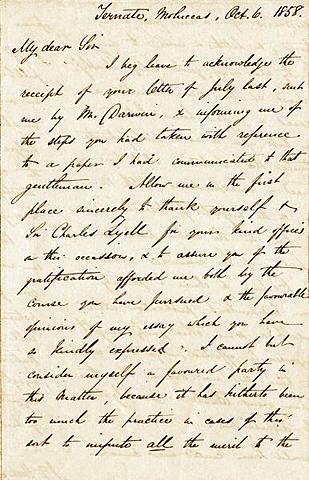 Ternate, Moluccas, Oct. 6. 1858.
My dear Sir
I beg leave to acknowledge the
receipt of your letter of July last, sent
me by Mr. Darwin, & informing me of
the steps you had taken with reference
to a paper I had communicated to that
gentleman. Allow me in the first
place sincerely to thank yourself &
Sir Charles Lyell for your kind offices
on this occasion, & to assure you of the
gratification afforded me both by the
course you have pursued & the favourable
opinions of my essay which you have
so kindly expressed. I cannot but
consider myself a favoured party in
this matter, because it has hitherto been
too much the practice in cases of this
sort to impute all the merit to the